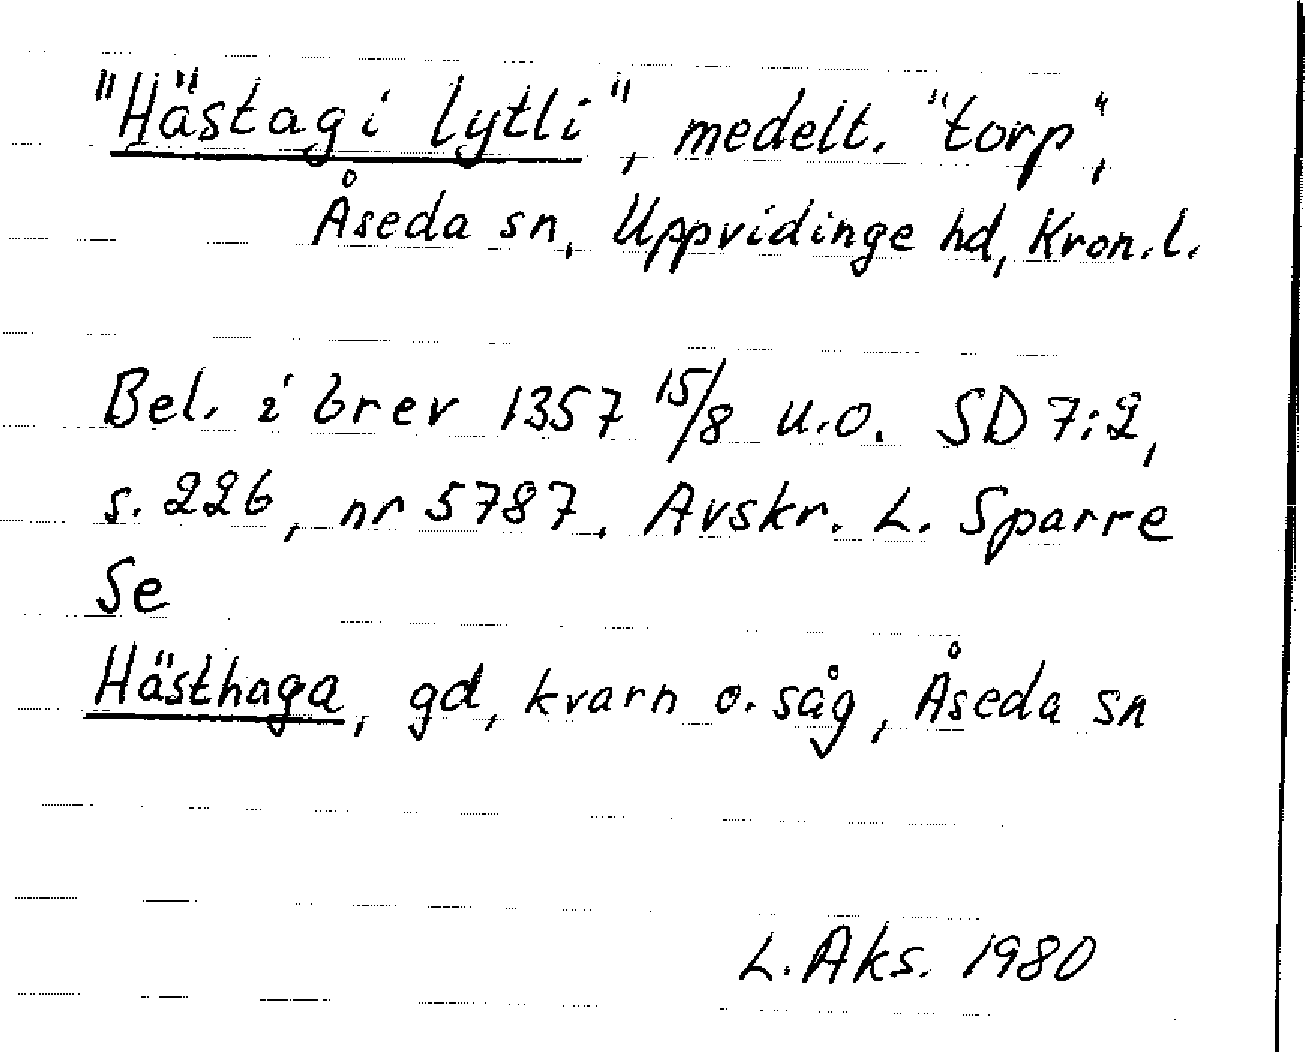 "Hästagi lytli", medelt. "torp",
Åseda sn, Uppvidinge hd, Kron.l.
Bel. i brev 1357 15/8 u.o. SD 7:2,
s. 226, nr 5787. Avskr. L. Sparre
Se
Hästhaga, gd, kvarn o. såg, Åseda sn
L. Aks. 1980